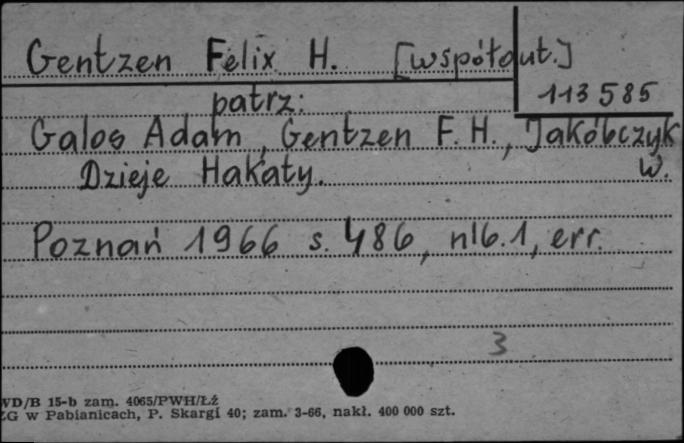 Gentzen Felix H. [współaut.]
113585
patrz:
Galos Adam, Gentzen F. H., Jakóbczyk
W.
Dzieje Hakaty.
Poznań 1966 s. 486, nlb. 1, err.
3
WD/B 15-b zam. 4065/PWH/Łź
ZG w Pabianicach, P. Skargi 40; zam. 3-66, nakł. 400 000 szt.